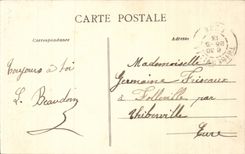 CARTE POSTALE
Correspondance
Adresse
Toujours à toi
L. Beaudoin
Mademoiselle
Germaine
à Folleville par
Thiberville
Eure